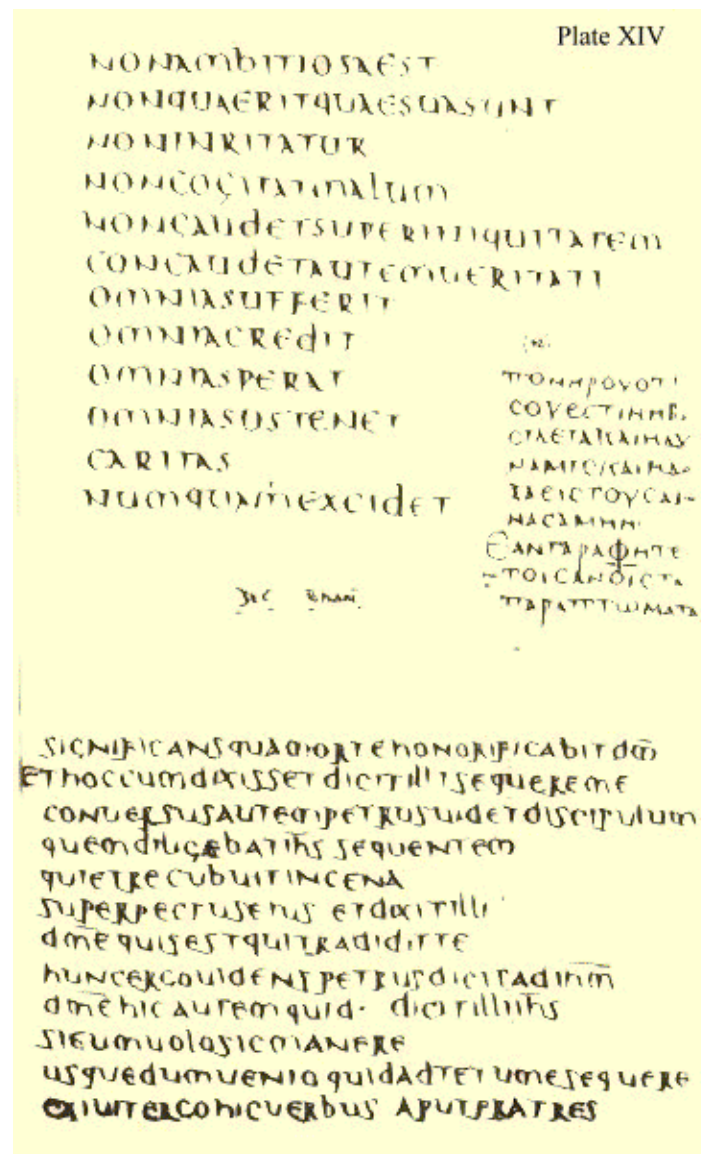 Plate XIV
NONAMBITIOSAEST
NONQUAERITQUAESUASUNT
NONINRITATUR
NONCOGITATMALUM
NONGAUDETSUPERINIQUITATEM
CONGAUDETAUTEMUERITATI
OMNIASUFFERIT
OMNIACREDIT
OMNIASPERAT
OMNIASUSTENET
CARITAS
NUMQUAMEXCIDET
ΠΟΝΗΡΟΥΟΤΙ
ϹΟΥΕϹΤΙΝΗΒΑ
ϹΙΛΕΙΑΚΑΙΗΔΥ
ΝΑΜΙϹΚΑΙΗΔΟ
ΞΑΕΙϹΤΟΥϹΑΙΩ
ΝΑϹΑΜΗΝ·
ΕΑΝΓΑΡΑΦΗΤΕ
ΤΟΙϹΑΝΟΙϹΤΑ
ΠΑΡΑΠΤΩΜΑΤΑ
SIGNIFICANSQUAMORTEHONORIFICABITDM̄
ETHOCCUMDIXISSETDICITILLISEQUEREME
CONUERSUSAUTEMPETRUSUIDETDISCIPULUM
QUEMDILIGEBATIH̄S SEQUENTEM
QUIETRECUBUITINCENA
SUPERPECTUSEIUS ETDIXITILLI
DM̄E QUISESTQUITRADIDITTE
HUNCERGOUIDENSPETRUSDICITADIHM̄
DM̄E HICAUTEMQUID· DICITILLIIH̄S
SIEUMUOLOSICMANERE
USQUEDUMUENIOQUIDADTETUMESEQUERE
EXIUITERGOHICUERBUS APUTFRATRES